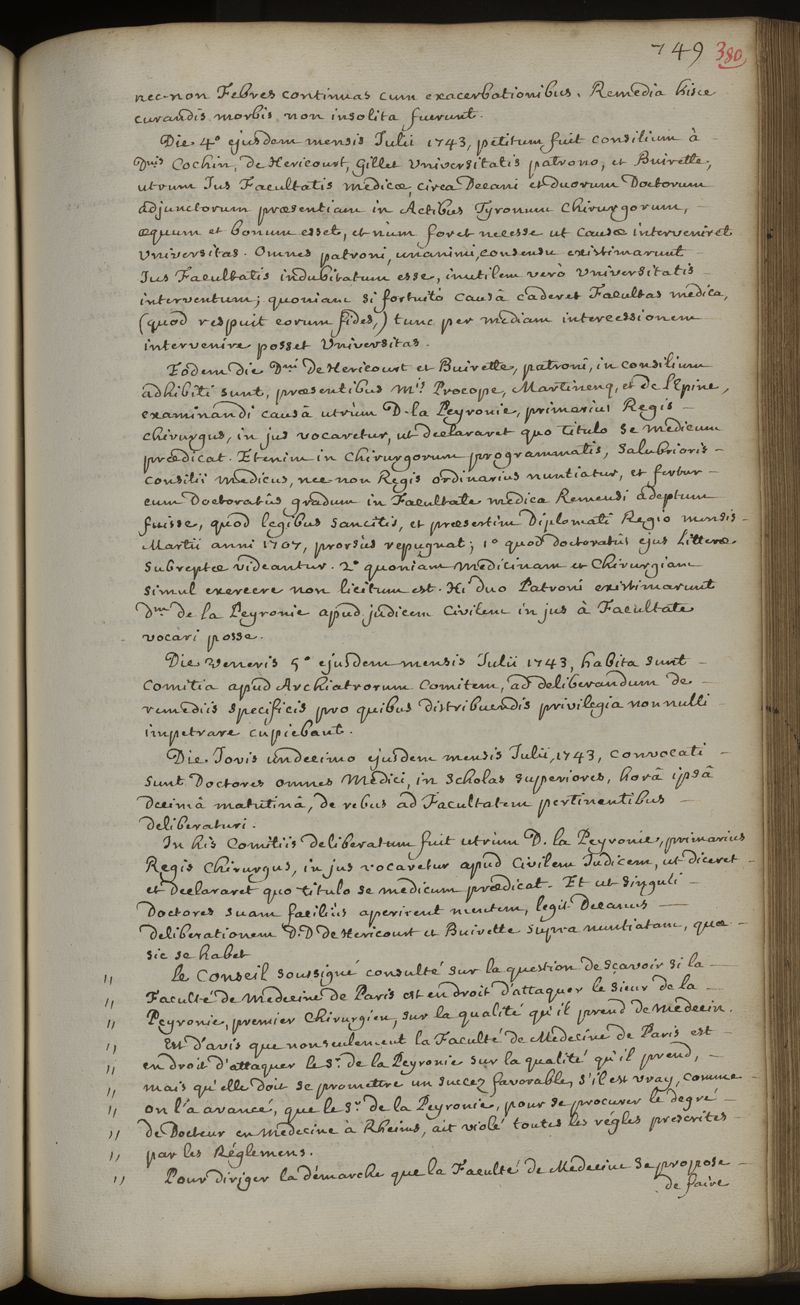 749 380
nec-non Febres continuas cum exacerbationibus. Remedia hisce
curandis morbis non insolita fuerunt.
Die 4º ejusdem mensis Julii 1743, petitum fuit consilium à
Dnis Cochin, De Hericourt, Gillet Universitatis patrono, et Buirette,
utrum Jus Facultatis medicæ, circa Decani et duorum Doctorum
adjunctorum præsentiam in Actibus Tyronum Chirurgorum,
æquum et bonum esset, et nùm foret necesse ut causæ interveniret
Universitas. Omnes patroni, unanimi consensu existimarunt
Jus Facultatis indubitatum esse, inutilem verò Universitatis
interventum; quoniam si fortuitò causâ caderet Facultas medica,
(quod respuit eorum fides,) tunc per mediam intercessionem
intervenire posset Universitas.
Eodem die Dni De Hericourt et Buirette, patroni, in consilium
adhibiti sunt, præsentibus Mis Procope, Martinenq, et de l'Epine,
examinandi causâ utrùm D. la Peyronie, primarius Regis
chirurgus, in jus vocaretur, ut declararet quo titulo se medicum
prædicat. Etenim in chirurgorum programmatis, Salubrioris
consilii medicus, nec non Regis ordinarius nuntiatur, et fertur
eum Doctoratûs gradum in Facultate medica Remensi adeptum
fuisse, quod legibus sancitis, et præsertim Diplomati Regio mensis
Martii anni 1707, prorsùs repugnat; 1º quod doctoratûs ejus Litteræ
subreptæ videantur. 2º quoniam medicinam et Chirurgiam
simul exercere non licitum est. Hi duo Patroni existimarunt
Dm de la Peyronie apud judicem civilem in jus à Facultate
vocari posse.
Die veneris 5º ejusdem mensis Julii 1743, habita sunt
comitia apud Archiatrorum Comitem, ad deliberandum de
remediis specificis pro quibus distribuendis privilegia nonnulli
impetrare cupiebant.
Die Jovis undecimo ejusdem mensis Julii, 1743, convocati
sunt Doctores omnes Medici, in Scholas superiores, horâ ipsâ
Decimâ matutinâ, de rebus ad Facultatem pertinentibus
deliberaturi.
In his Comitiis deliberatum fuit utrùm D. la Peyronie, primarius
Regis Chirurgus, in jus vocaretur apud Civilem Judicem, ut diceret
et declararet quo titulo se medicum prædicat. Et ut singuli
Doctores suam faciliùs aperirent mentem, legit Decanus
deliberationem D.D De Hericourt et Buirette supra nuntiatam, quæ
sic se habet
" Le Conseil soussigné consulté sur la question de sçavoir si la
" Faculté de Medecine de Paris est en droit d'attaquer le Sieur de la
" Peyronie, premier Chirurgien, sur la qualité qu'il prend de Medecin.
" Est d'avis que non seulement la Faculté de Medecine de Paris est
" en droit d'attaquer le Sr. de la Peyronie sur la qualité qu'il prend,
" mais qu'elle doit se promettre un succez favorable, s'il est vray, comme
" on l'a avancé, que le Sr. de la Peyronie, pour se procurer le degré
" de Docteur en Medecine à Rheims, ait violé toutes les régles prescrites
" par les Réglemens.
" Pour diriger la démarche que la Faculté de Medecine se propose
de faire